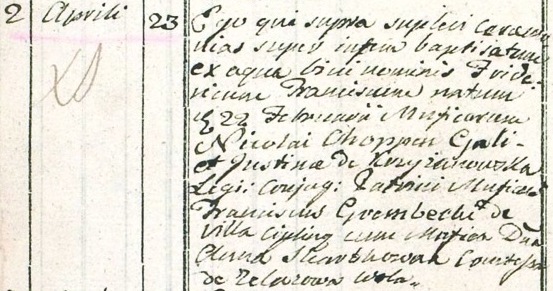 2 Aprili 23 Ego qui supra suplevi ceremo
nias super infan baptisatum
ex aqua bini nominis Fride
ricum Franciscum natum
d 22 Februarii Musicorum
Nicolai Choppen Gali-
et Justina de Krzyżanowska
Legi: Conjug: Patrini Musicor
Franciscus Grembecki de
villa Ciepliny cum Musica Dna
Anna Skarbkowa Comtessa
de Zelazowa Wola.